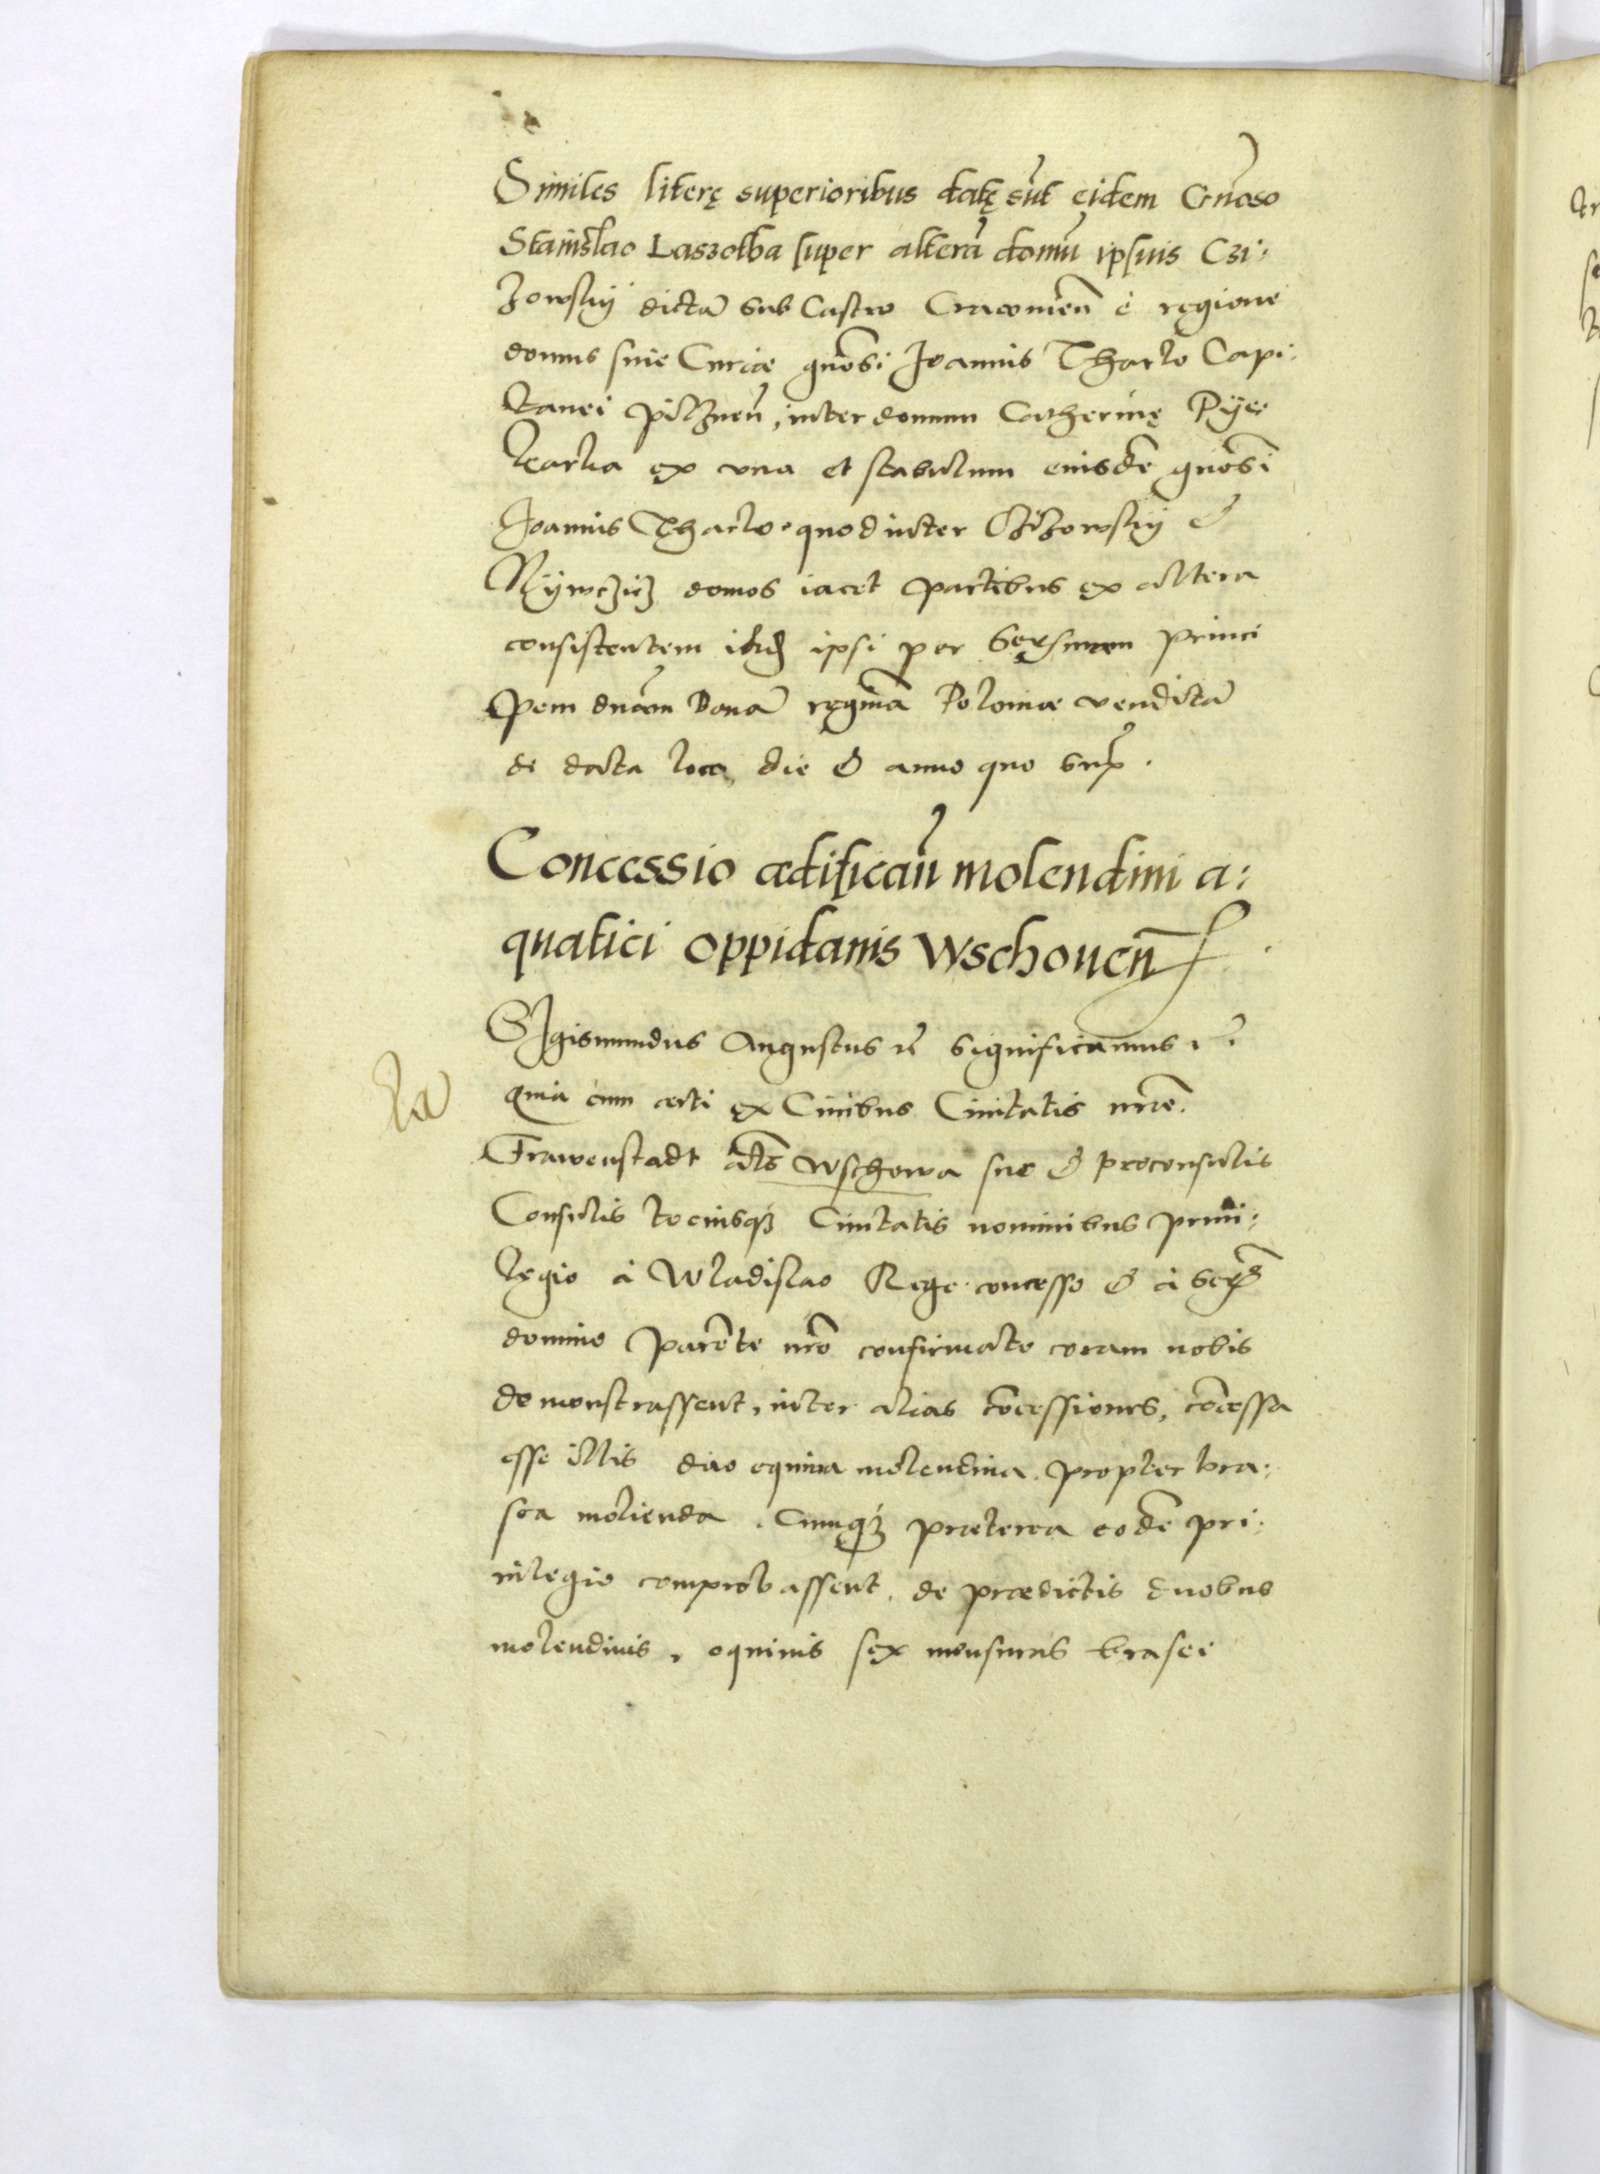 Similes literę superioribus datę sūt eidem Gn̄oso
Stanislao Laszotha super alterā domū ipsius Czi:
zowskÿ dictā sub Castro Cracouieñ è regione
domus siue Curiæ gn̄osi Joannis Tharlo Capi:
tanei Pilzneñ, inter domum Catherinę Pÿe:
karka ex vna et stabulum eiusdē gn̄osi
Joannis Tharlo quod inter Czizowskÿ &
domos iacet partibus ex altera
consistentem ipsi per Serſmam Princi
pem dnām Bonā reginā Poloniæ venditā
de data loco die & anno quo supʳ.
Concessio ædificañ molendini a:
quatici oppidanis Wschoueñ
SIgismundus Augustus rč significamus rč
quia cum certi ex Ciuibus Ciuitatis nrāe
Frawenstadt als Wschowa suo & proconsulis
Consulis tociusq3 Ciuitatis nominibus priui:
legio à Wladislao Rege concesso & à Serᵐᵒ
domino Parēte nrō confirmato coram nobis
demonstrassent, inter alias cōcessiones, cōcessa
esse illis duo equina molendina propter bra:
sea molienda. Cumq3 præterea eodē pri:
uilegio comprobassent, de prædictis duobus
molendinis, equinis sex mensuras brasei